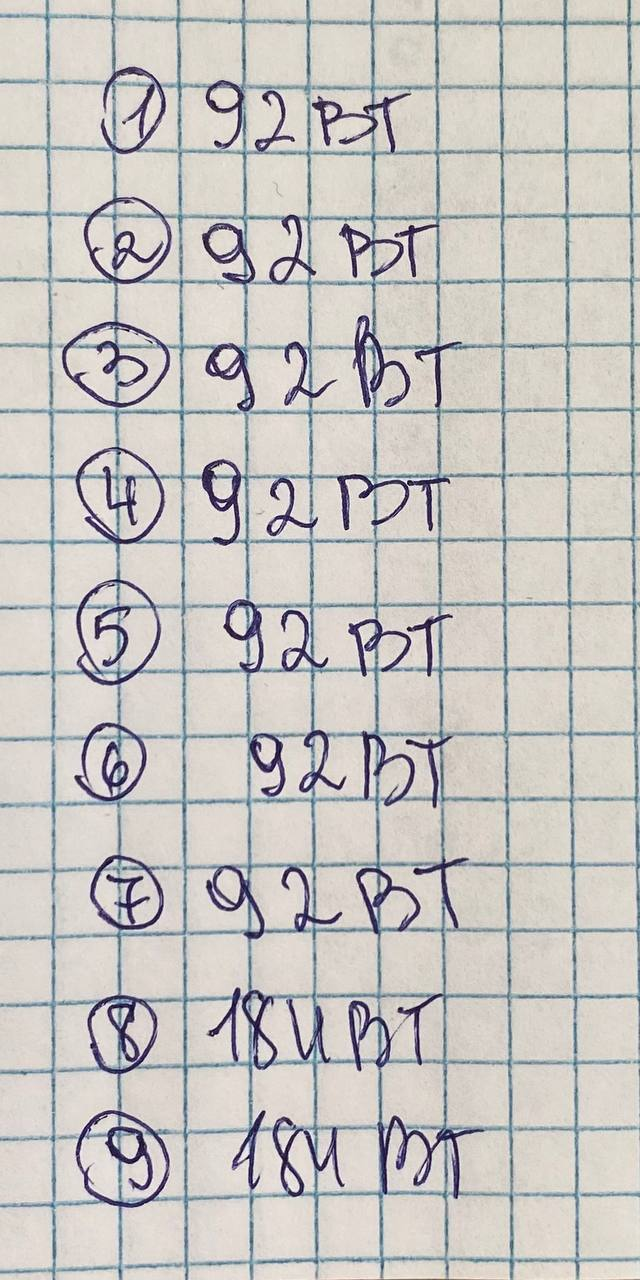 1 92 Вт
2 92 Вт
3 92 Вт
4 92 Вт
5 92 Вт
6 92 Вт
7 92 Вт
8 184 Вт
9 184 Вт